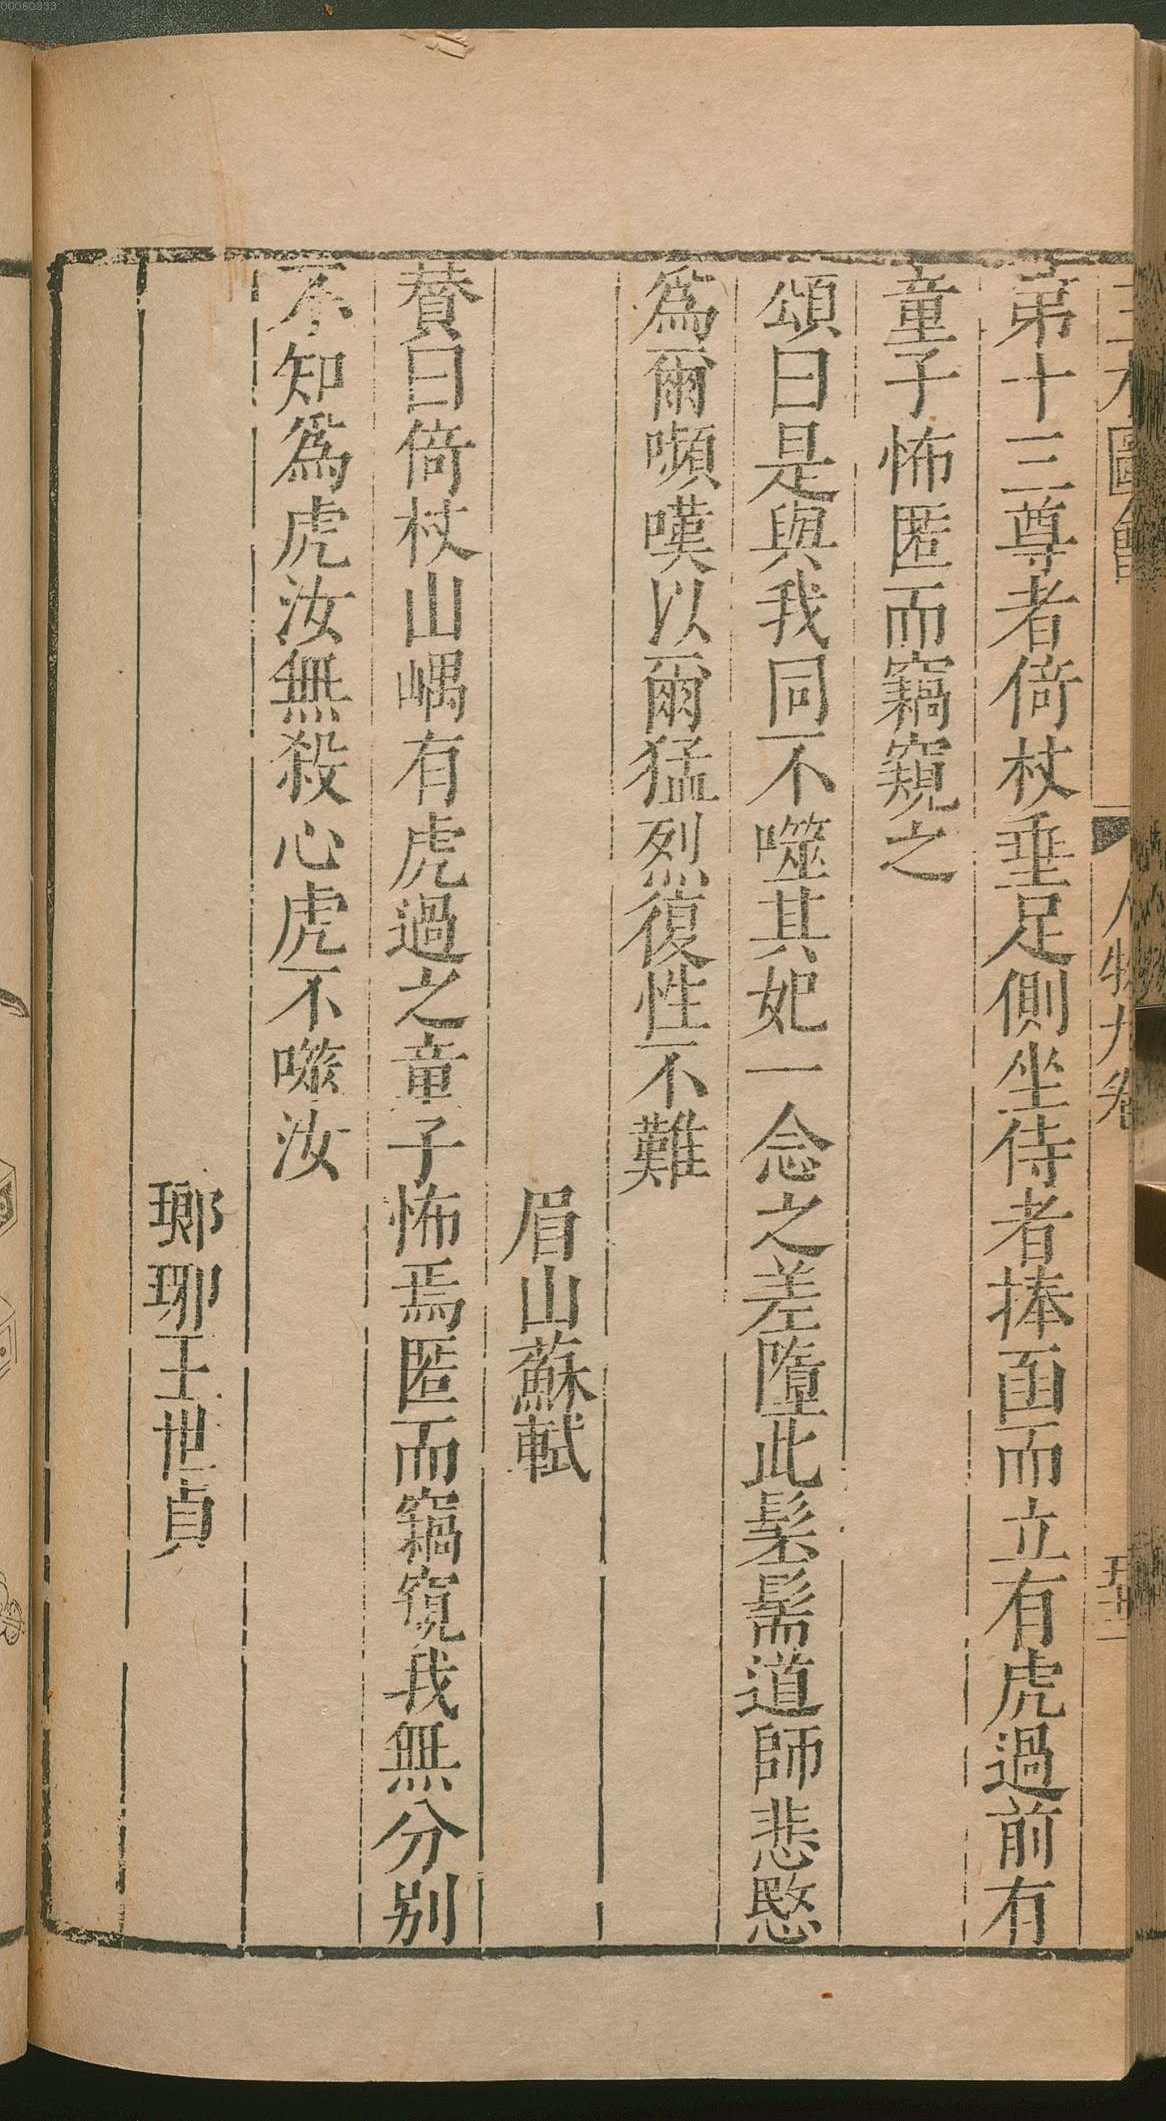 三才圖會 人物九卷
第十三尊者倚杖垂足側坐侍者捧函而立有虎過前有
童子怖匿而竊窺之
頌曰是與我同不噬其妃一念之差墮此髤髵道師悲愍
爲爾嚬嘆以爾猛烈復性不難
眉山蘇軾
賛曰倚杖山嵎有虎過之童子怖焉匿而竊窺我無分別
不知爲虎汝無殺心虎不嗾汝
瑯琊王世貞
00060333